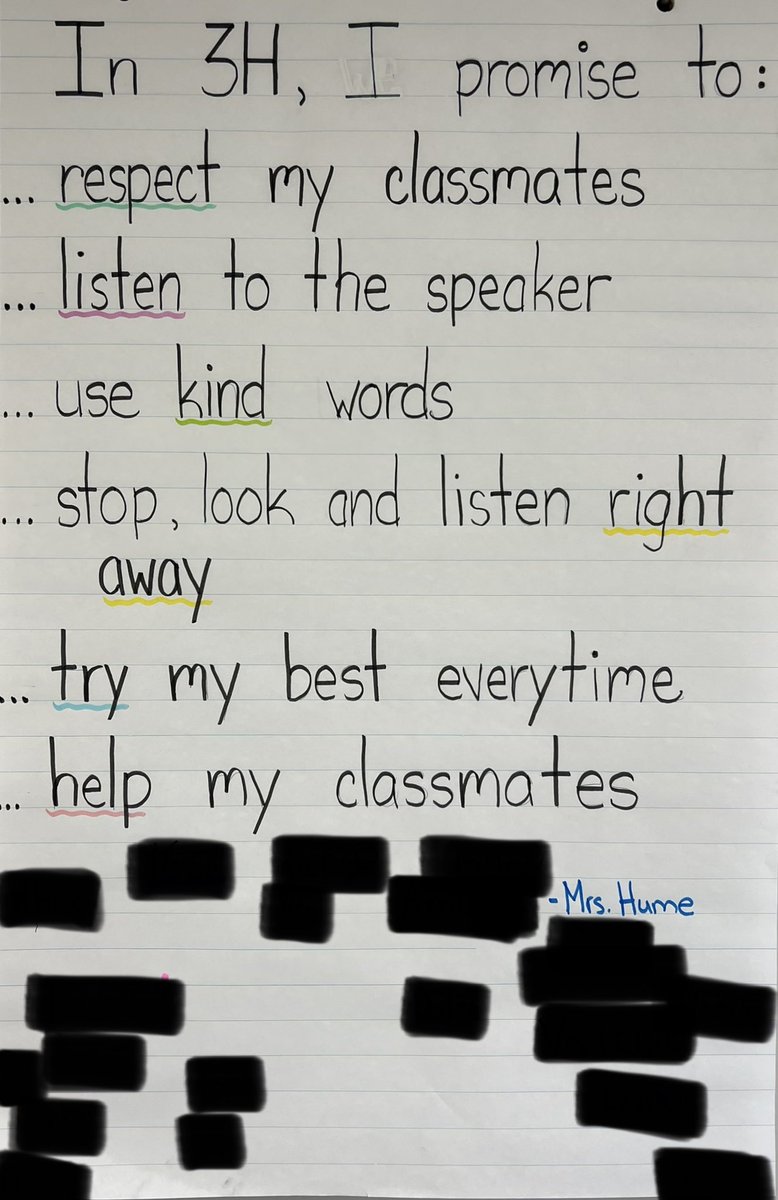 In 3H, I promise to:
... respect my classmates
... listen to the speaker
... use kind words
... stop, look and listen right
away
... try my best everytime
... help my classmates
- Mrs. Hume